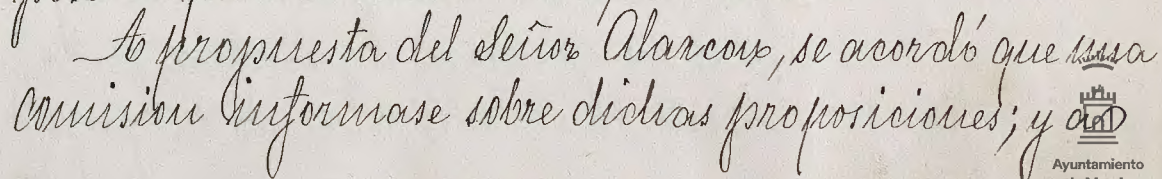 A propuesta del Señor Alarcon, se acordó que una
comision informase sobre dichas proposiciones; y
Ayuntamiento